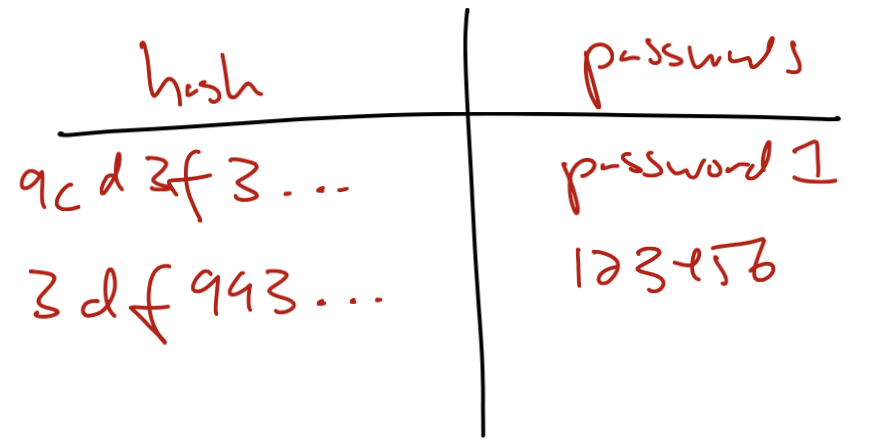 hash passwords
9cd3f3... password1
3df993... 123456